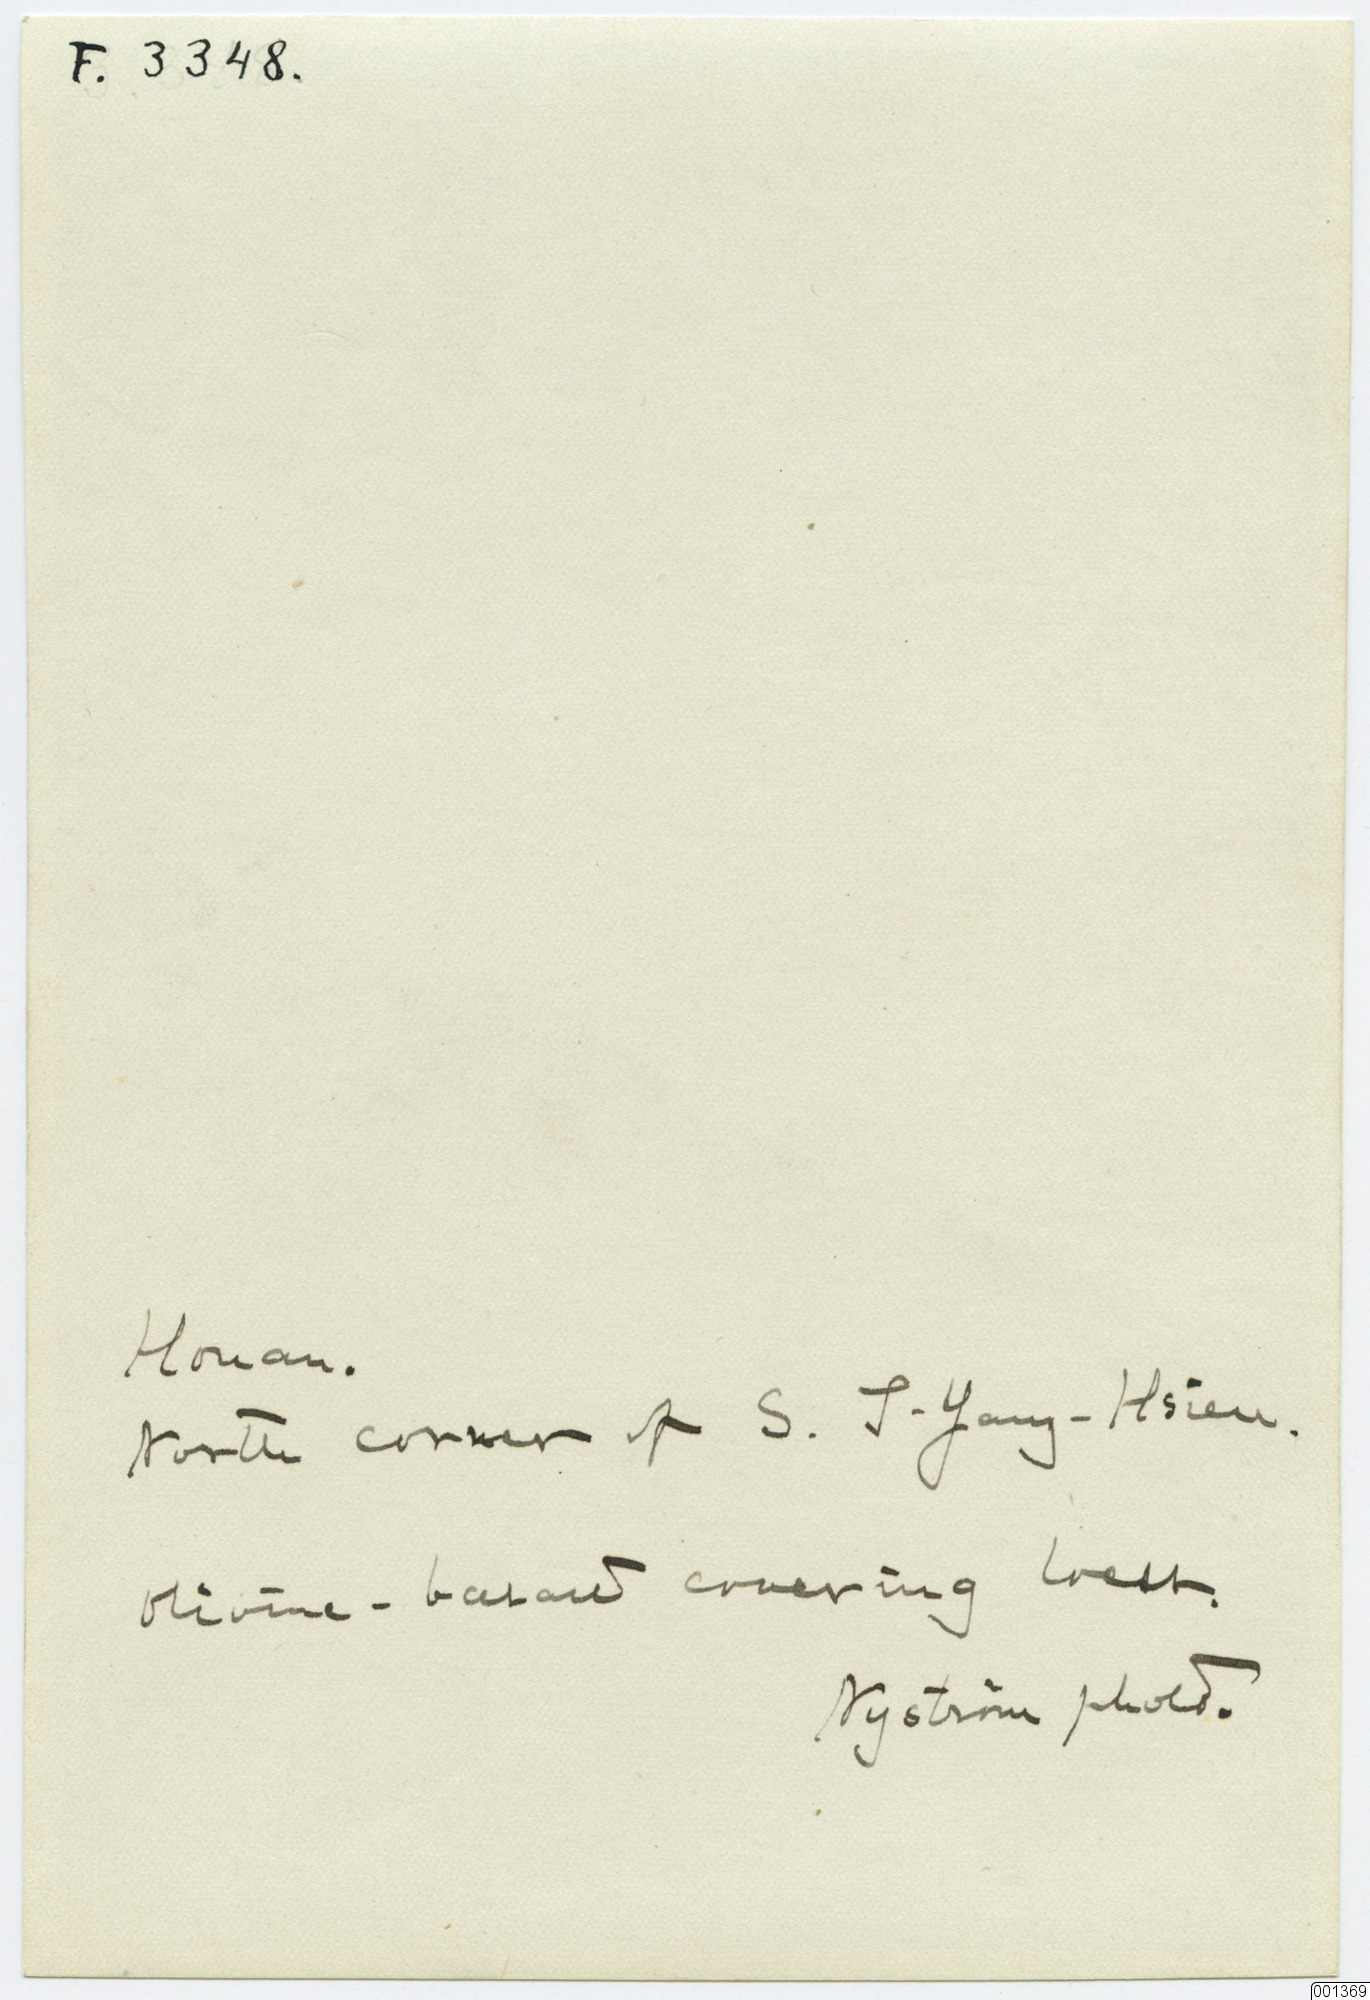 F. 3348.
Honan.
North corner of S. I-Yang-Hsien.
Olivine-basalt covering loess.
Nyström photo.
001369